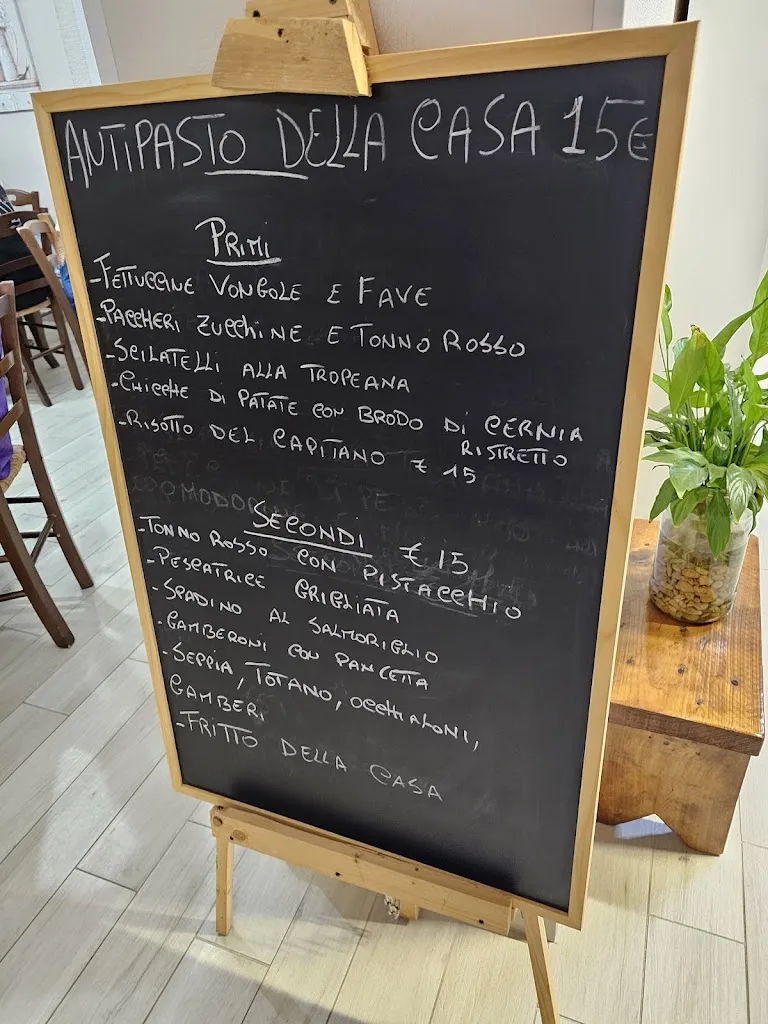 ANTIPASTO DELLA CASA 15€
PRIMI
-FETTUCCINE VONGOLE E FAVE
-PACCHERI ZUCCHINE E TONNO ROSSO
-SCILATELLI ALLA TROPEANA
-CHICCHE DI PATATE CON BRODO DI CERNIA
RISTRETTO
-RISOTTO DEL CAPITANO € 15
SECONDI € 15
-TONNO ROSSO CON PISTACCHIO
-PESCATRICE GRIGLIATA
-SPADINO AL SALMORIGLIO
-GAMBERONI CON PANCETTA
-SEPPIA, TOTANO, OCCHIALONI,
GAMBERI
-FRITTO DELLA CASA